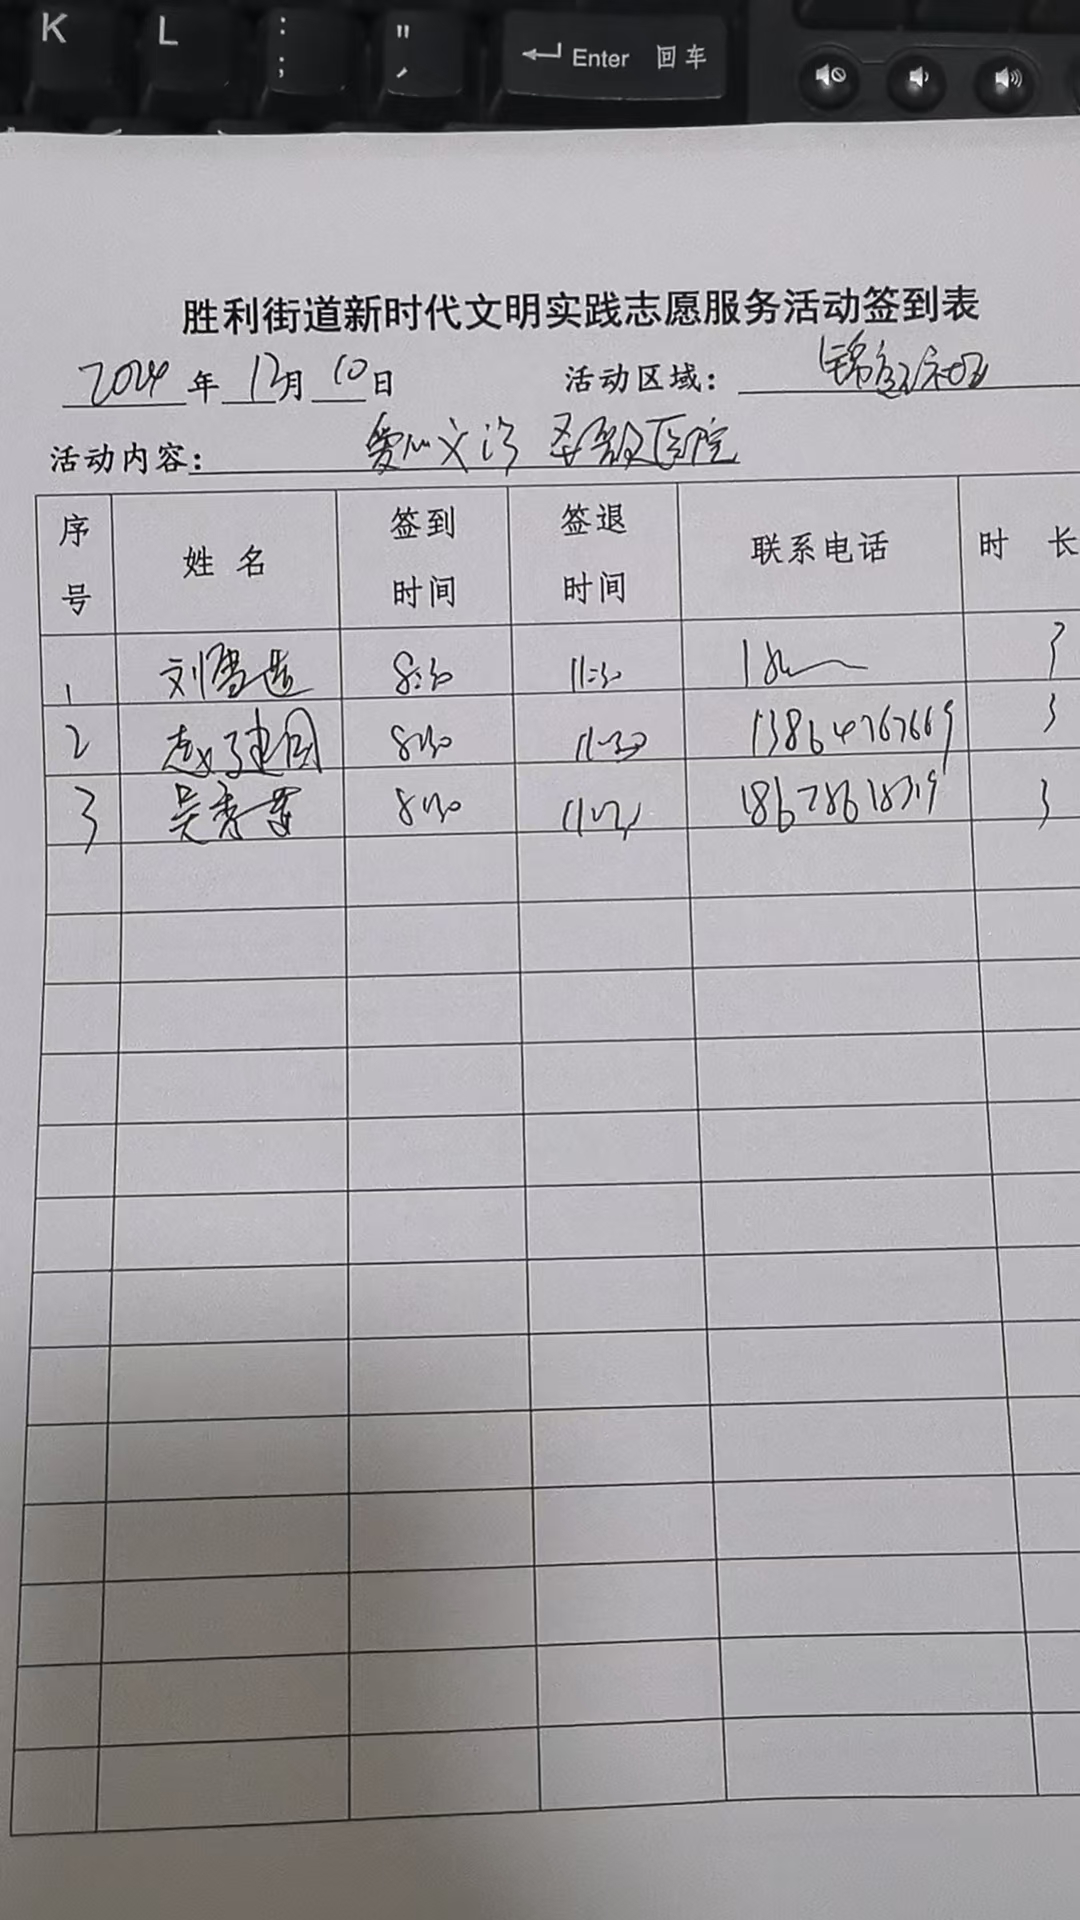 K L : ; " ' Enter 回车
胜利街道新时代文明实践志愿服务活动签到表
2024年12月10日 活动区域：锦社区
活动内容：爱心义诊 医院
序号 姓名 签到时间 签退时间 联系电话 时长
1 刘 8:30 11:30 18 3
2 赵建国 8:30 11:30 13864767669 3
3 吴秀莲 8:30 11:30 3